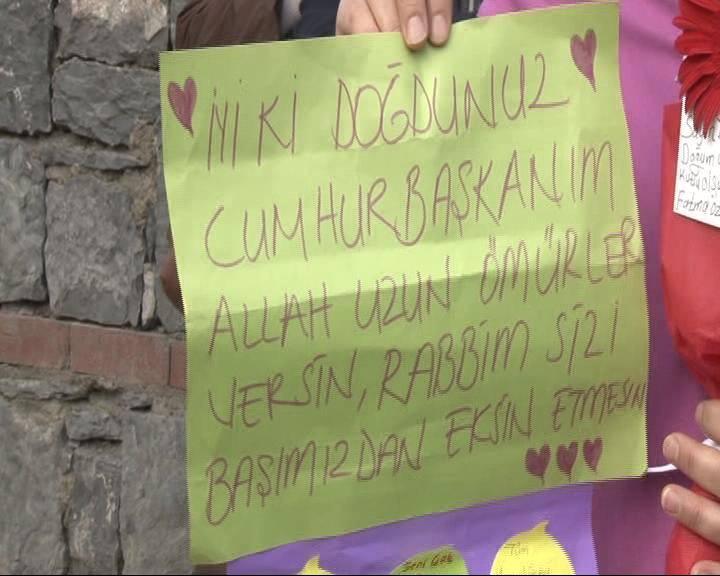 İYİ Kİ DOĞDUNUZ
CUMHURBAŞKANIM
ALLAH UZUN ÖMÜRLER
VERSİN, RABBİM SİZİ
BAŞIMIZDAN EKSİN ETMESİN
Doğum